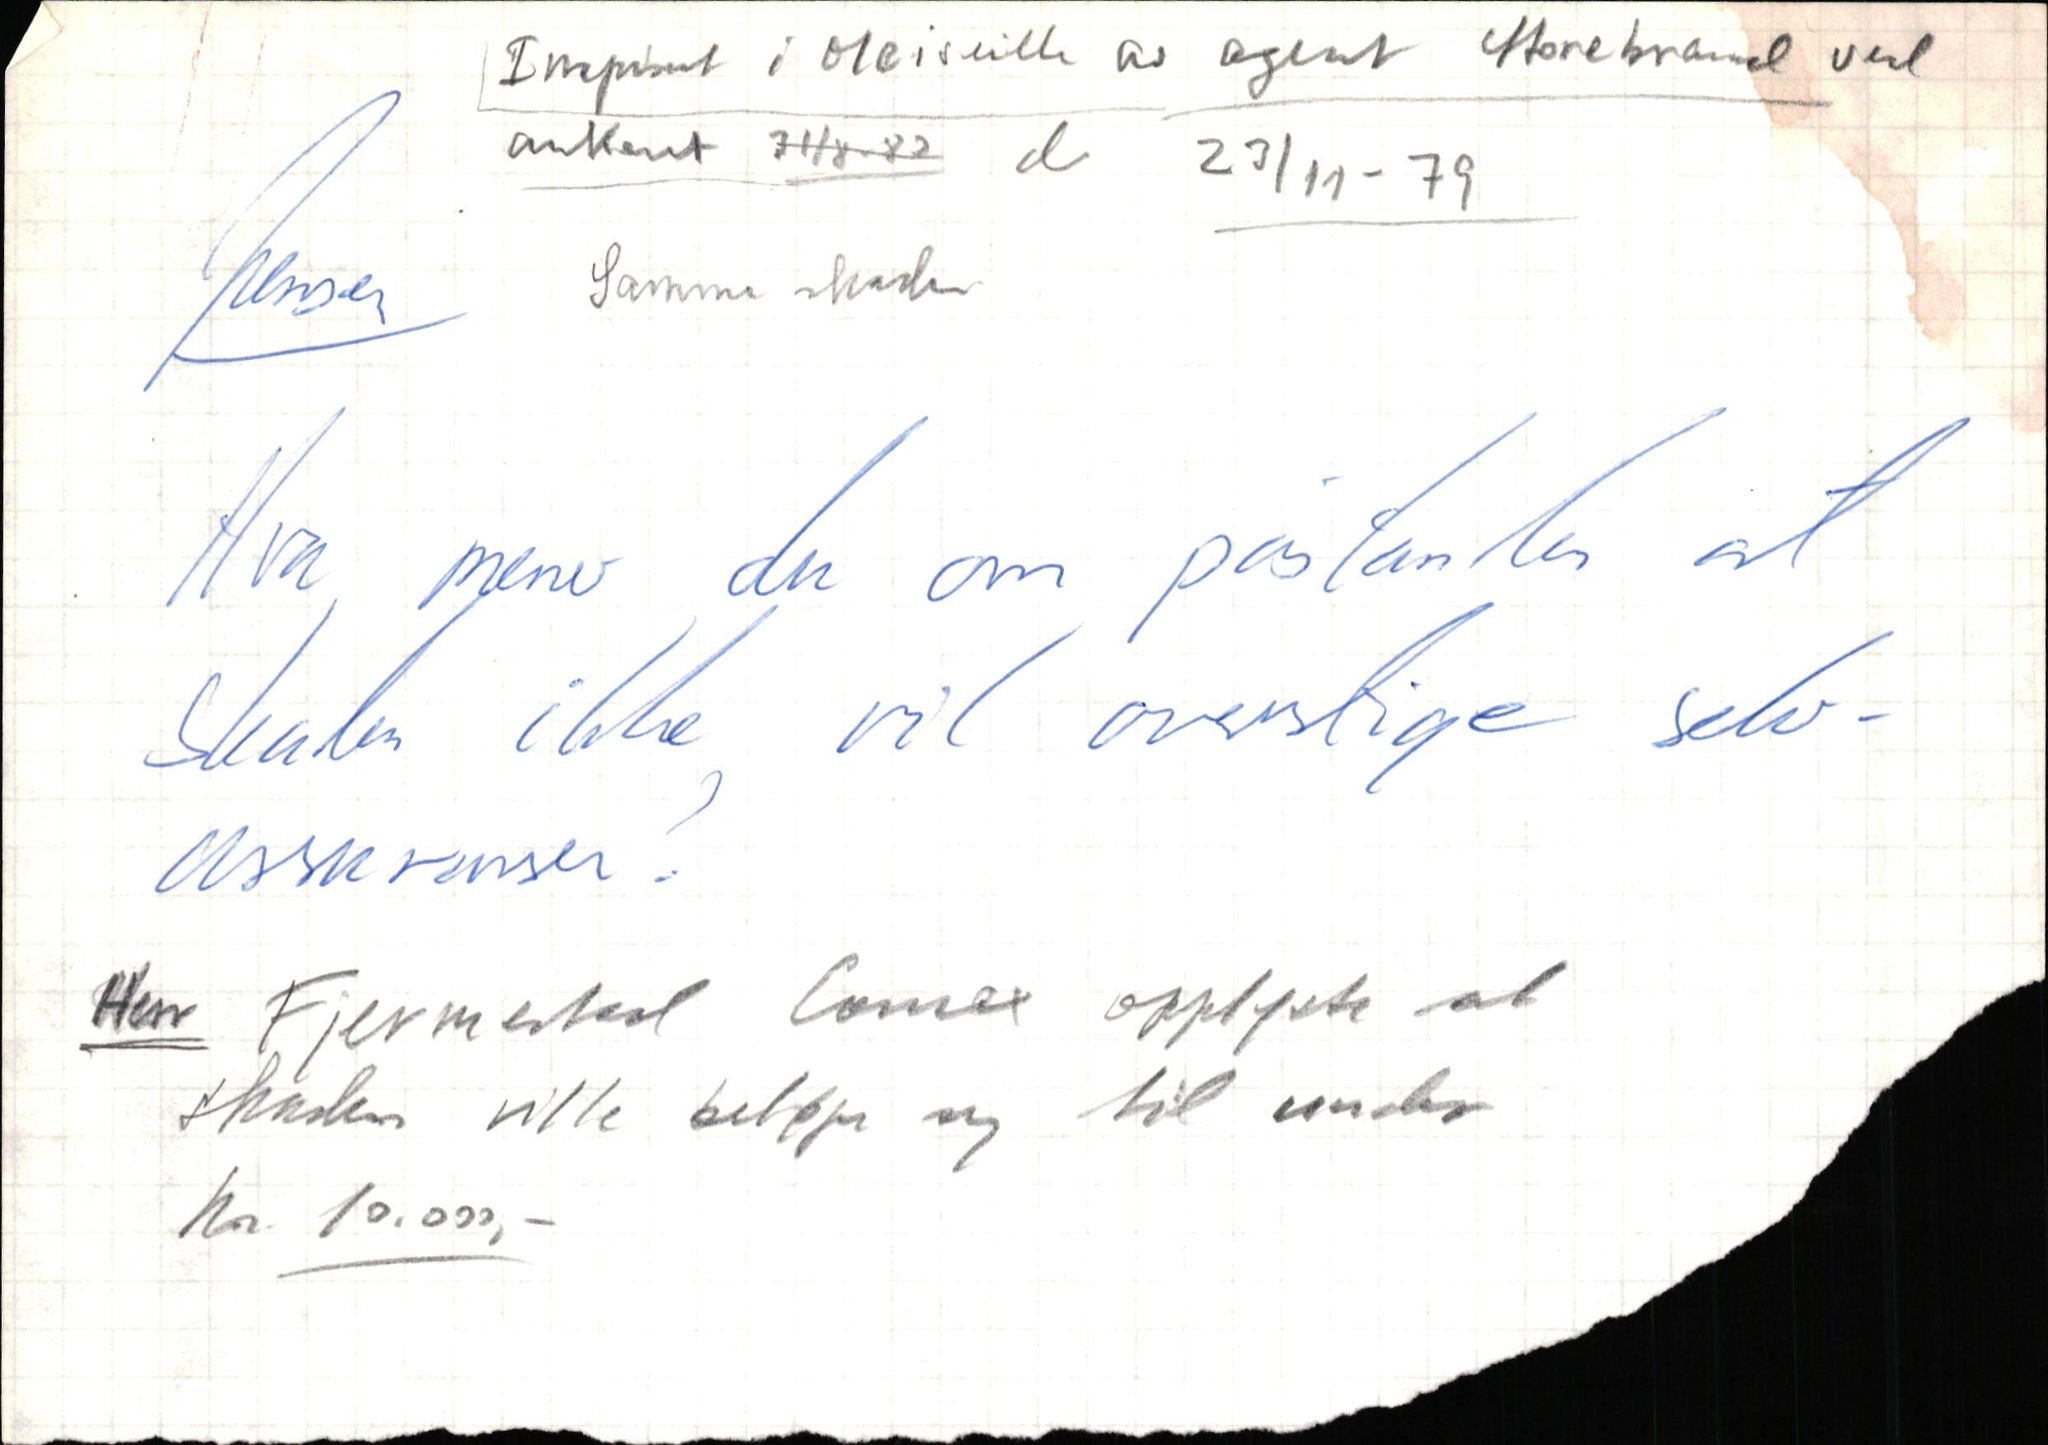 Inspisert i Marseille av agent Storebrand ved
ankomst d 23/11-79
Jensen
Samme skaden
Hva mener du om påstanden at
skaden ikke vil overstige selv-
assuransen?
Herr Fjermestad Comex opplyste at
skaden ville beløpe seg til under
kr. 10.000,-